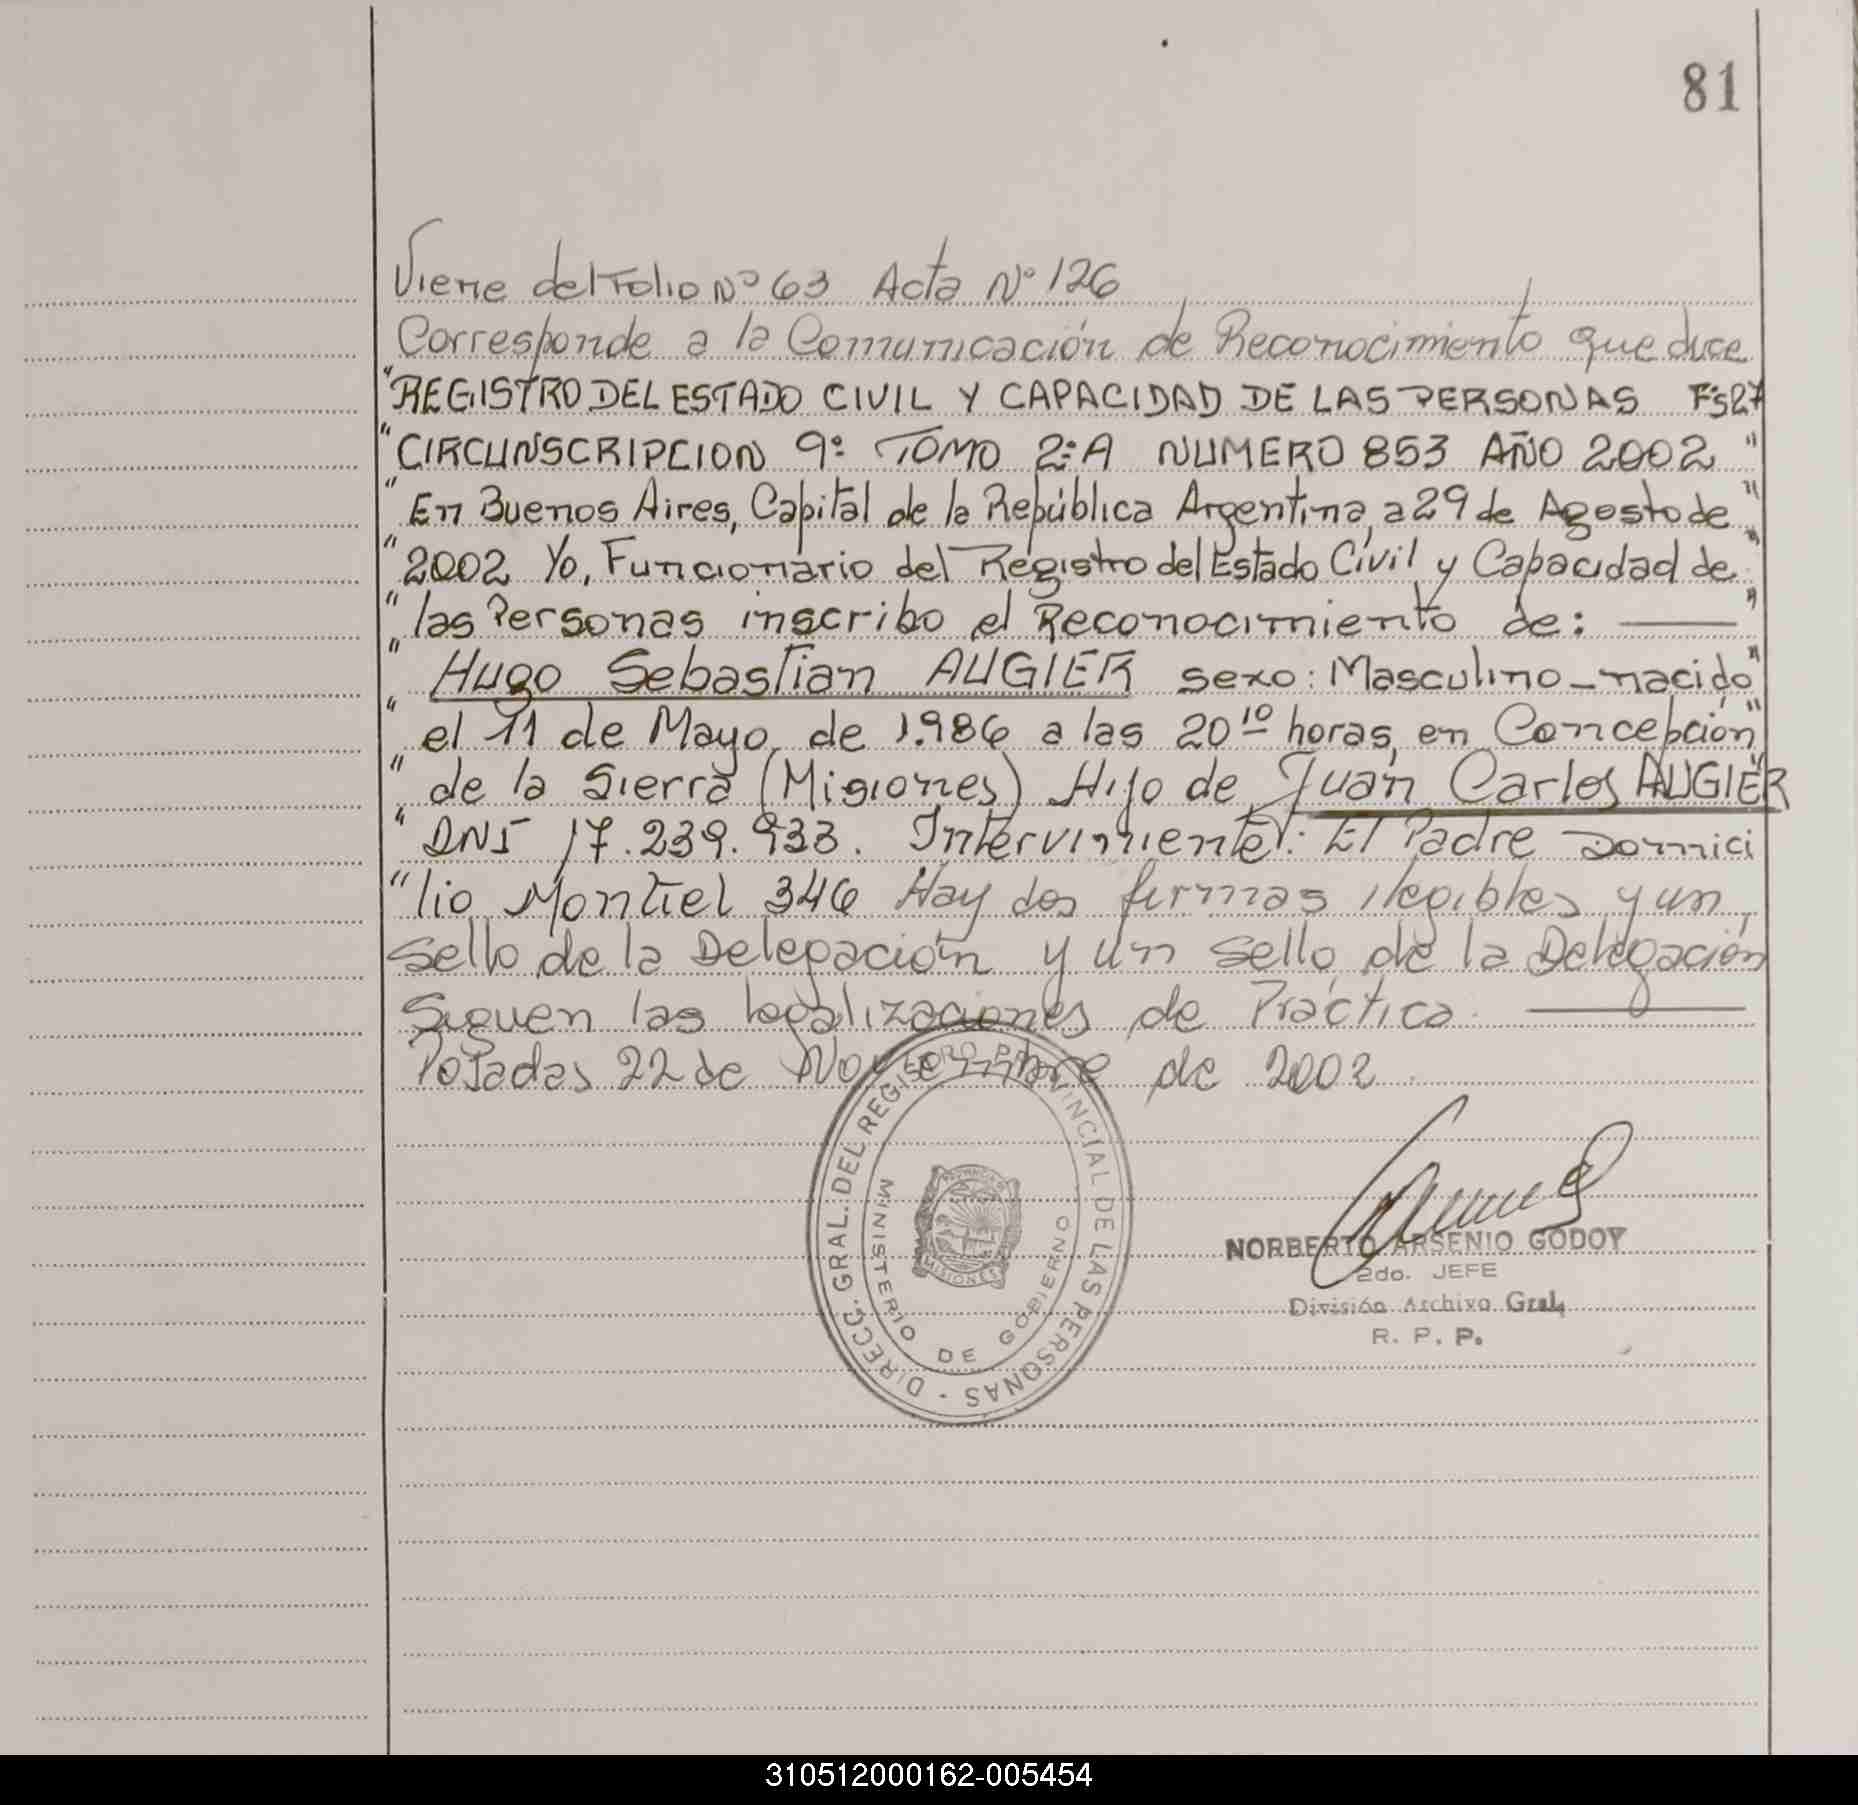 81
Viene del Folio Nº 63 Acta Nº 126
Corresponde a la Comunicación de Reconocimiento que dice
"REGISTRO DEL ESTADO CIVIL Y CAPACIDAD DE LAS PERSONAS Fs27
"CIRCUNSCRIPCION 9º TOMO 2ºA NUMERO 853 AÑO 2002"
"En Buenos Aires, Capital de la República Argentina, a 29 de Agosto de"
"2002 Yo, Funcionario del Registro del Estado Civil y Capacidad de"
"las Personas inscribo el Reconocimiento de: ——"
"Hugo Sebastian AUGIER sexo: Masculino - nacido"
"el 11 de Mayo de 1.986 a las 20 10 horas, en Concepción"
"de la Sierra (Misiones) Hijo de Juan Carlos AUGIER"
"DNI 17.239.933. Interviniente: El Padre Domici
"lio Montiel 346 Hay dos firmas ilegibles y un
sello de la Delegación y un sello de la Delegación
Siguen las legalizaciones de Práctica. ——
Posadas 22 de Noviembre de 2002.
DIRECC. GRAL. DEL REGISTRO PROVINCIAL DE LAS PERSONAS -
MINISTERIO DE GOBIERNO
PROVINCIA
MISIONES
NORBERTO ARSENIO GODOY
2do. JEFE
División Archivo Gral.
R. P. P.
310512000162-005454